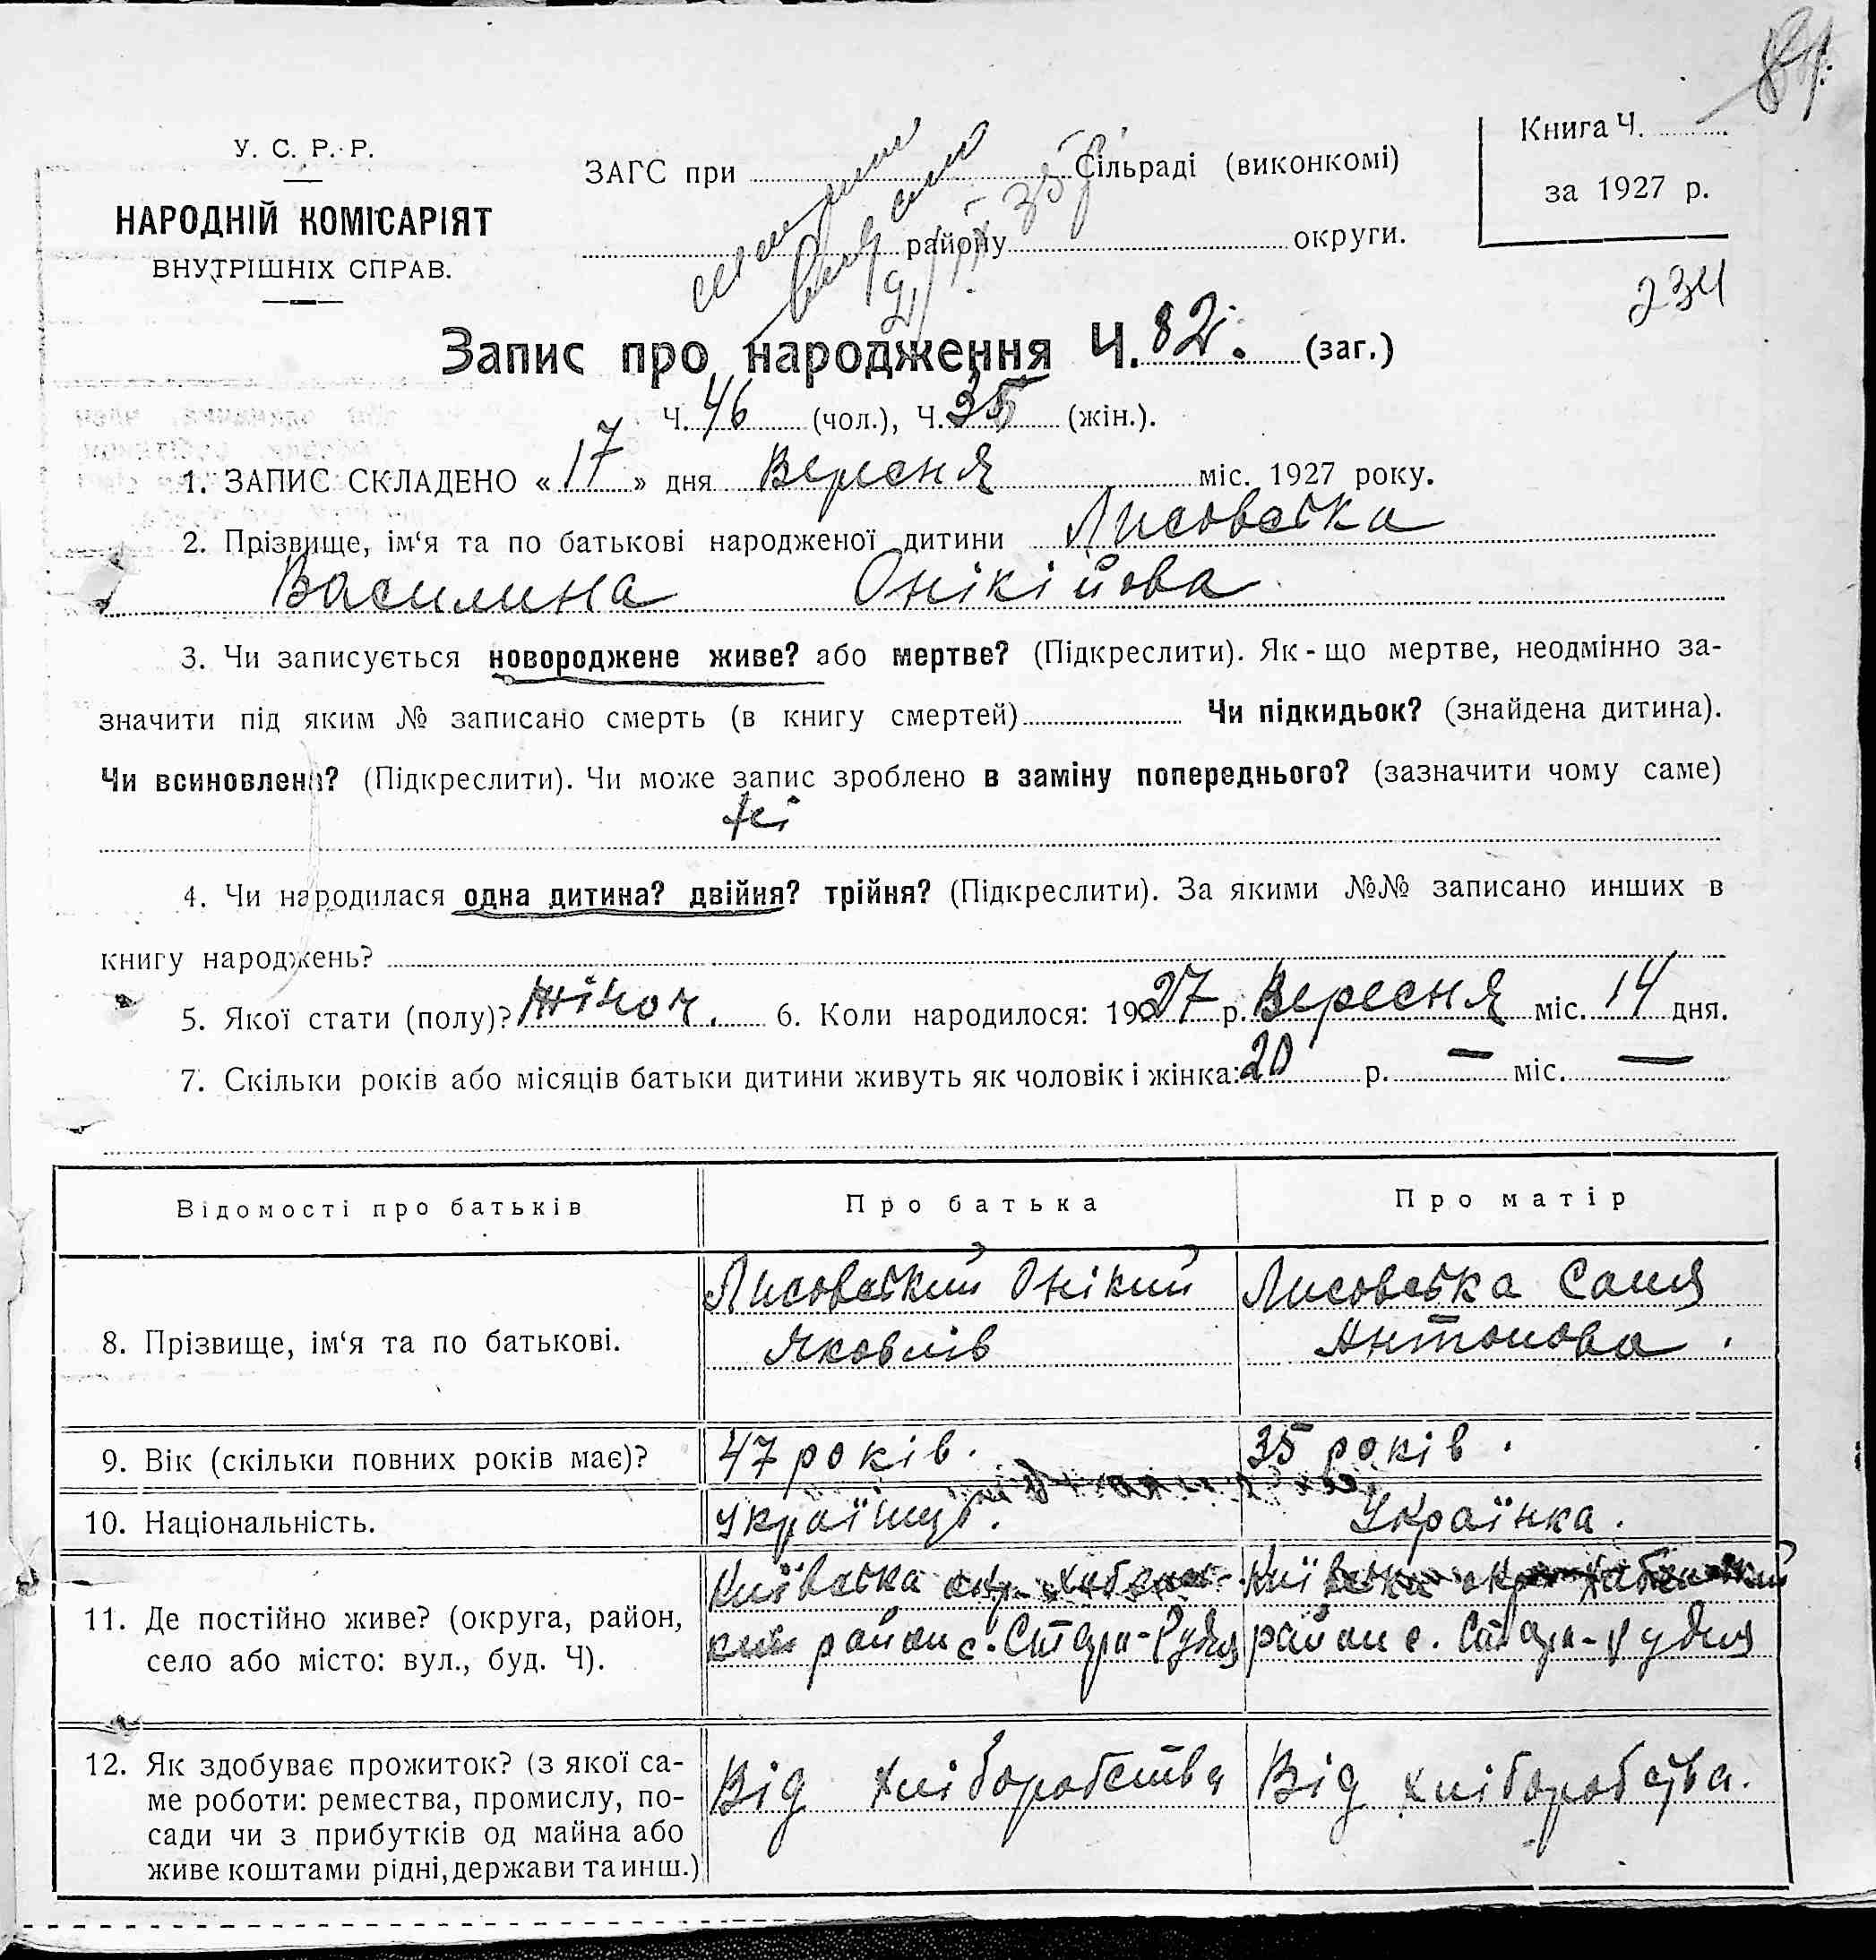 У. С. Р. Р.
НАРОДНІЙ КОМІСАРІЯТ
ВНУТРІШНІХ СПРАВ.
ЗАГС при Сільраді (виконкомі)
району округи.
Книга Ч.
за 1927 р.
234
Запис про народження Ч. 82. (заг.)
Ч. 46 (чол.), Ч. 35 (жін.).
1. ЗАПИС СКЛАДЕНО « 17 » дня Вересня міс. 1927 року.
2. Прізвище, ім‘я та по батькові народженої дитини Лисовська
Василина Онікійова
3. Чи записується новороджене живе? або мертве? (Підкреслити). Як-що мертве, неодмінно за-
значити під яким № записано смерть (в книгу смертей) Чи підкидьок? (знайдена дитина).
Чи всиновлена? (Підкреслити). Чи може запис зроблено в заміну попереднього? (зазначити чому саме)
Ні
4. Чи народилася одна дитина? двійня? трійня? (Підкреслити). За якими №№ записано инших в
книгу народжень?
5. Якої стати (полу)? Жіноч. 6. Коли народилося: 1927 р. Вересня міс. 14 дня.
7. Скільки років або місяців батьки дитини живуть як чоловік і жінка: 20 р. — міс. —
Відомості про батьків Про батька Про матір
8. Прізвище, ім‘я та по батькові.
Лисовський Онікий
Яковлів
Лисовська Соня
Антонова.
9. Вік (скільки повних років має)? 47 років. 35 років.
10. Національність. Українці. Українка.
11. Де постійно живе? (округа, район,
село або місто: вул., буд. Ч).
Київська окр.
район с. Стара-Рудня
Київська окр.
район с. Стара-Рудня
12. Як здобуває прожиток? (з якої са-
ме роботи: ремества, промислу, по-
сади чи з прибутків од майна або
живе коштами рідні, держави та инш.)
Від хліборобства
Від хліборобства.